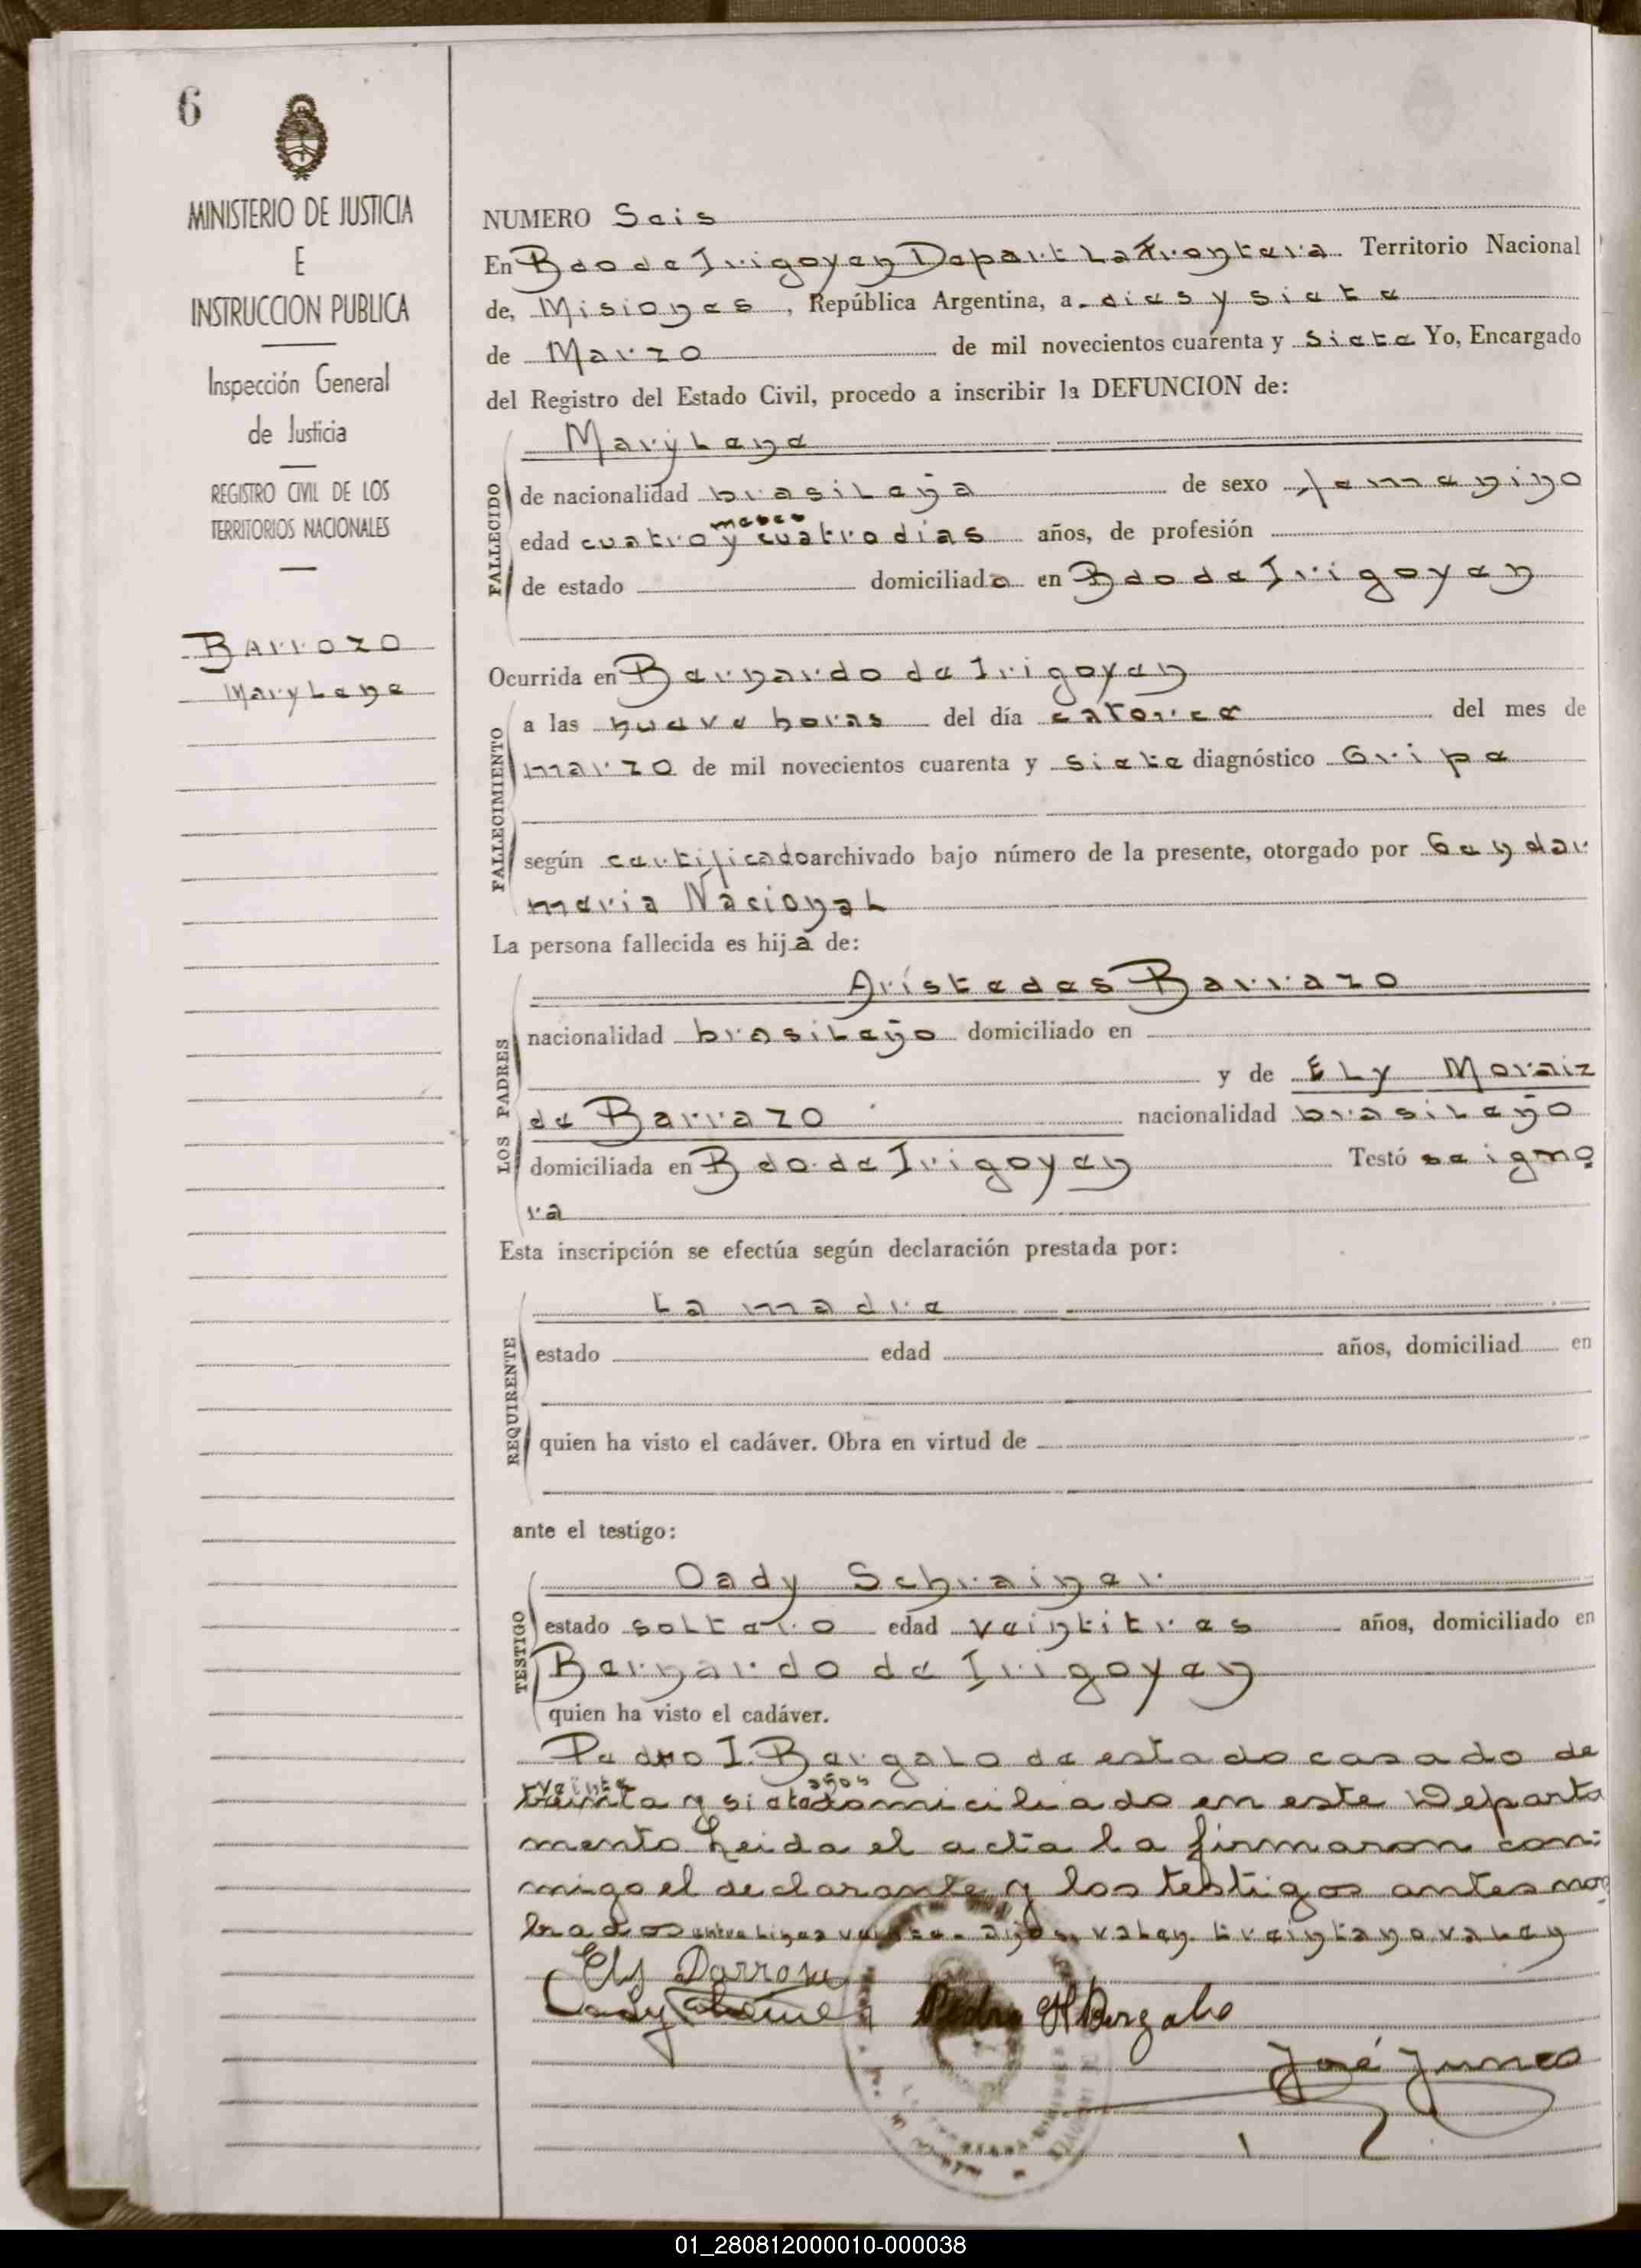 6
MINISTERIO DE JUSTICIA
E
INSTRUCCION PUBLICA
Inspección General
de Justicia
REGISTRO CIVIL DE LOS
TERRITORIOS NACIONALES
Barrozo
Mary Lene
NUMERO Seis
En Bdo de Irigoyen Depart La Frontera Territorio Nacional
de, Misiones, República Argentina, a dies y siete
de Marzo de mil novecientos cuarenta y Siete Yo, Encargado
del Registro del Estado Civil, procedo a inscribir la DEFUNCION de:
Mary Lene
FALLECIDO
de nacionalidad brasileña de sexo femenino
meses
edad cuatro y cuatro días años, de profesión
de estado domiciliada en Bdo de Irigoyen
Ocurrida en Bernardo de Irigoyen
FALLECIMIENTO
a las nueve horas del día catorce del mes de
marzo de mil novecientos cuarenta y siete diagnóstico Gripe
según certificado archivado bajo número de la presente, otorgado por Gendar
meria Nacional
La persona fallecida es hija de:
LOS PADRES
Aristedes Barrazo
nacionalidad brasileño domiciliado en
y de Ely Moraiz
de Barrazo nacionalidad brasileño
domiciliada en Bdo. de Irigoyen Testó se igno
ra
Esta inscripción se efectúa según declaración prestada por:
REQUIRENTE
La madre
estado edad años, domiciliad en
quien ha visto el cadáver. Obra en virtud de
ante el testigo:
TESTIGO
Oady Schrainer
estado soltero edad veintitres años, domiciliado en
Bernardo de Irigoyen
quien ha visto el cadáver.
Pedro I. Bergalo de estado casado de
veinte años
treinta y siete domiciliado en este Departa
mento Leida el acta la firmaron con:
migo el declarante y los testigos antes nom
brados entre linea años valen treinta no valen
Ely Barroso
Pedro Bergalo
José Junco
01_280812000010-000038